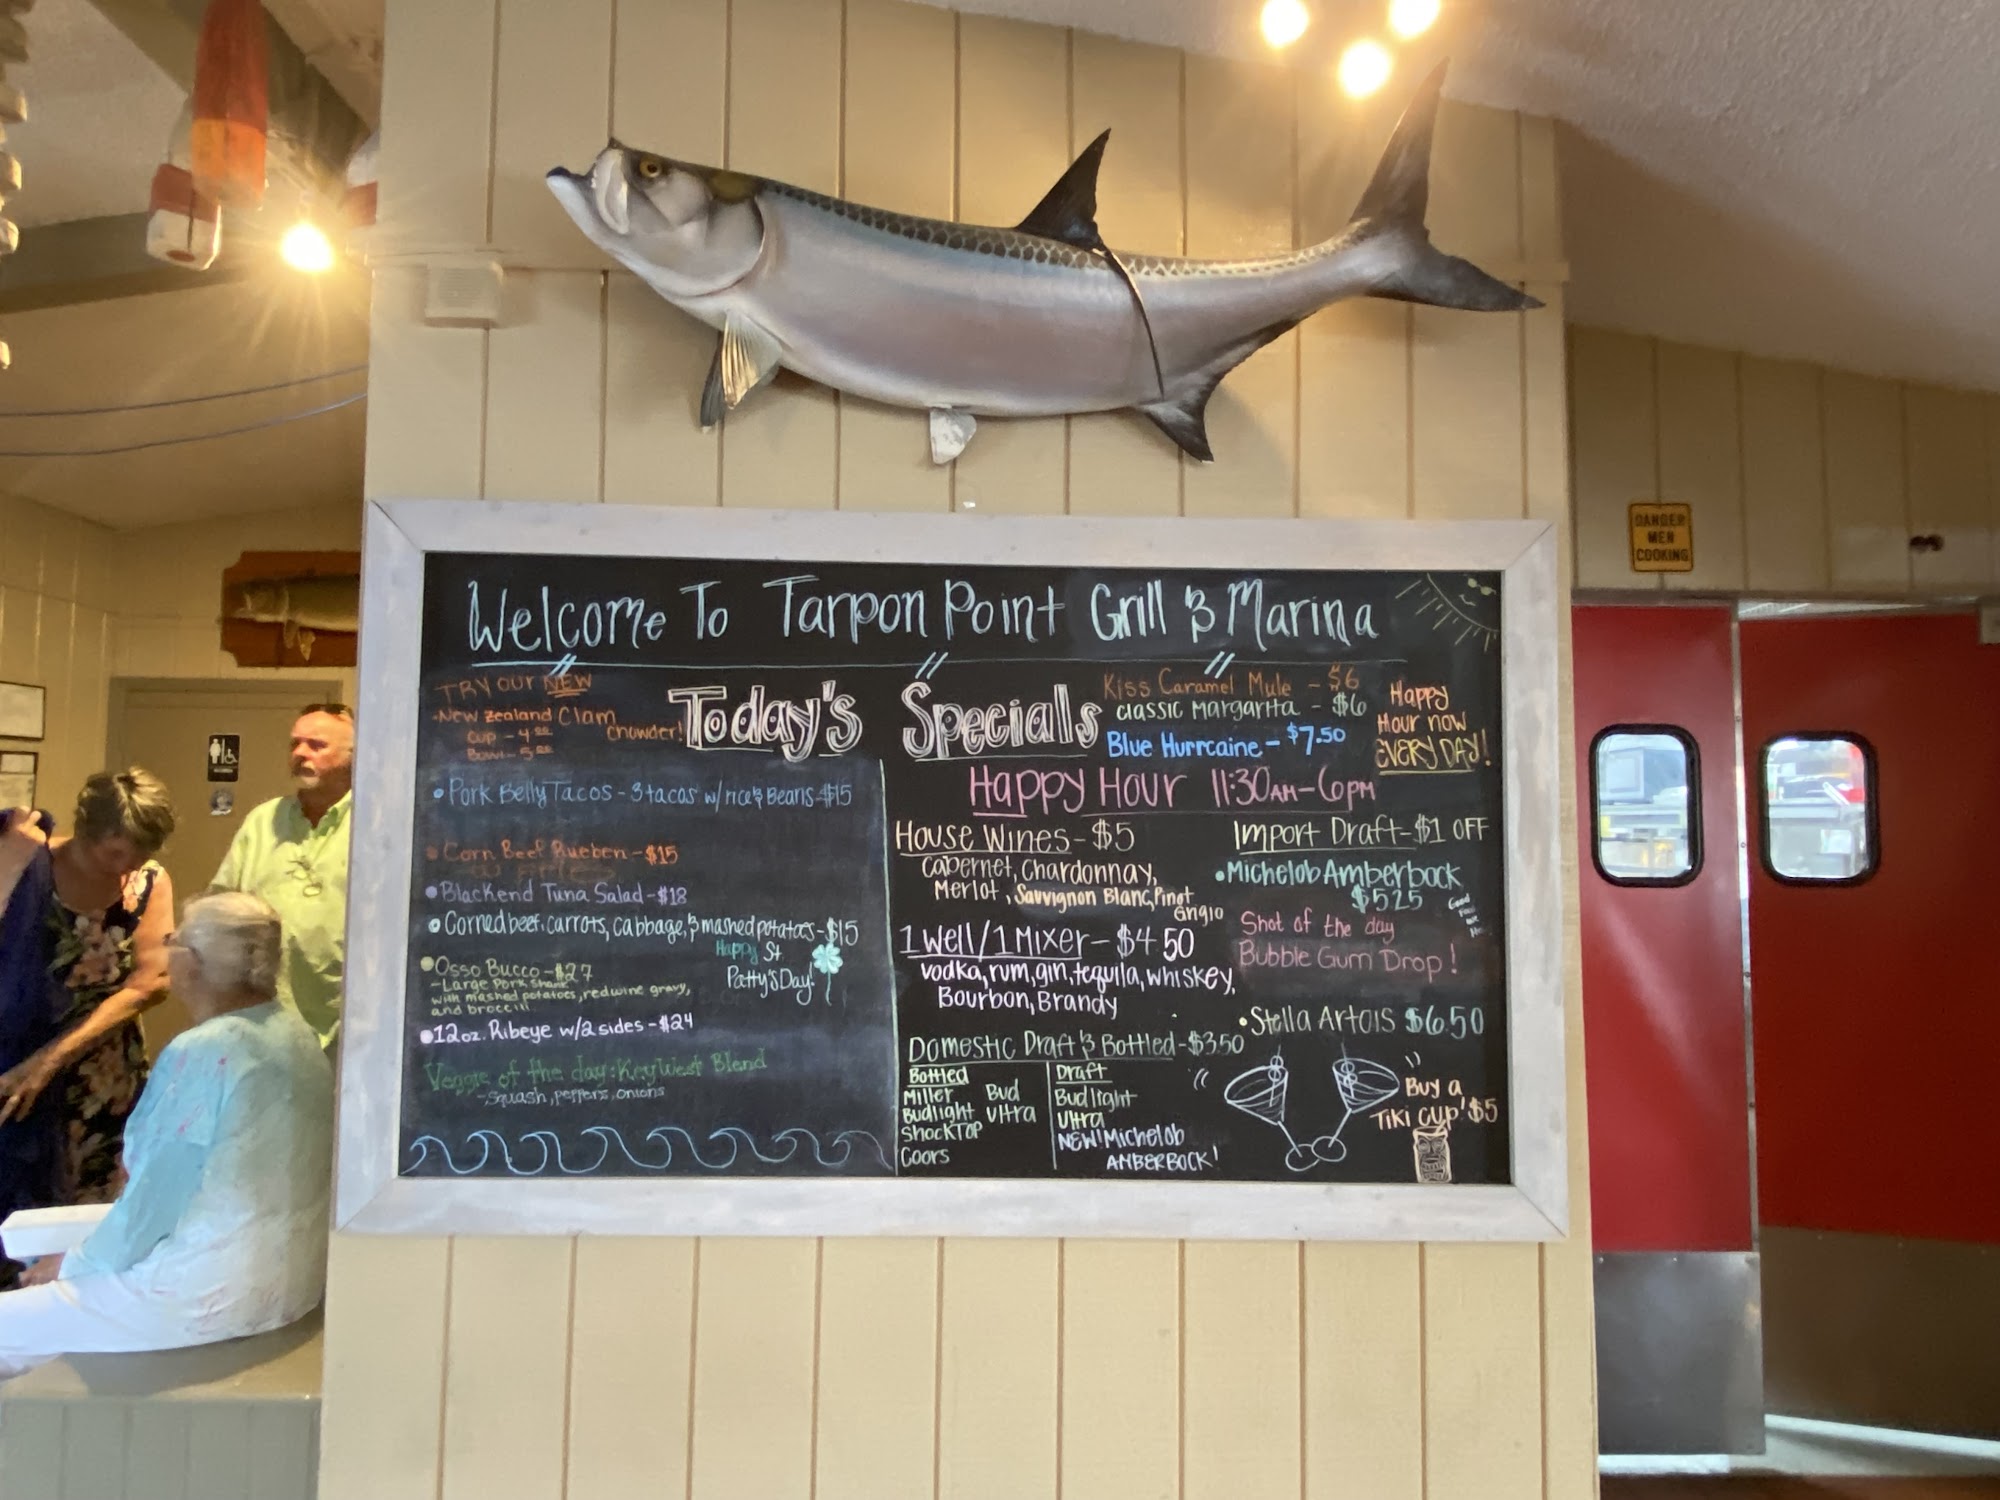 Welcome To Tarpon Point Grill & Marina
TRY OUR NEW
-New Zealand Clam
Chowder!
Cup - 4.00
Bowl - 5.00
Today's Specials
Kiss Caramel Mule - $6
Classic Margarita - $6
Blue Hurrcaine - $7.50
Happy
Hour now
EVERY DAY!
• Pork Belly Tacos - 3 tacos w/ rice & Beans - $15
• Corn Beef Rueben - $15
• Blackend Tuna Salad - $18
• Corned beef, carrots, cabbage, & mashed potatoes - $15
Happy St
Patty's Day!
• Osso Bucco - $27
- Large Pork Shank
with mashed potatoes, red wine gravy,
and broccili
• 12oz. Ribeye w/2 sides - $24
Veggie of the day: Key West Blend
- Squash, peppers, onions
Happy Hour 11:30AM-6PM
House Wines - $5
Cabernet, Chardonnay,
Merlot, Sauvignon Blanc, Pinot
Grigio
1 Well/1 Mixer - $4.50
Vodka, rum, gin, tequila, whiskey,
Bourbon, Brandy
Domestic Draft & Bottled - $3.50
Bottled
Miller
Budlight
ShockTOP
Coors
Bud
Ultra
Draft
Budlight
Ultra
NEW! Michelob
AMBERBOCK!
Import Draft - $1 OFF
• Michelob Amberbock
$5.25
Good
Food
Shot of the day
Bubble Gum Drop!
• Stella Artois $6.50
Buy a
Tiki cup! $5
DANGER
MEN
COOKING